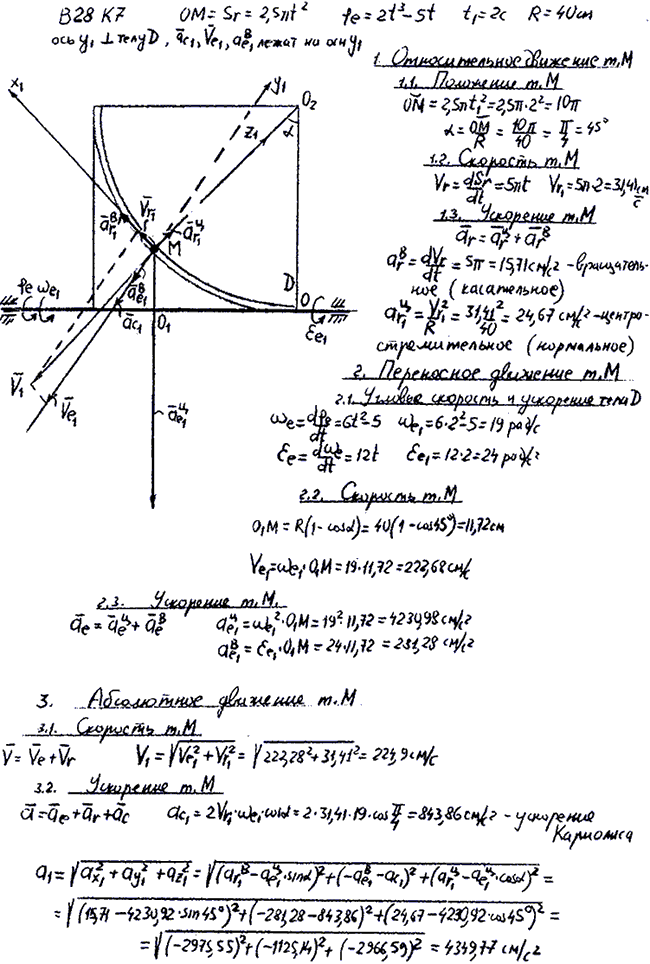 В28 К7 OM = Sr = 2,5πt² φe = 2t³-5t t₁ = 2c R = 40cm
ось y₁ ⊥ телу D, a̅c₁, V̅e₁, a̅ᴮe₁ лежат на оси y₁
1. Относительное движение т.М
1.1. Положение т.М
O̅M̅ = 2,5πt₁² = 2,5π·2² = 10π
α = O̅M̅/R = 10π/40 = π/4 = 45°
1.2. Скорость т.М
Vr = dSr/dt = 5πt Vr₁ = 5π·2 = 31,41 cm/c
1.3. Ускорение т.М
a̅r = a̅rᶣ + a̅rᴮ
arᴮ = dVr/dt = 5π = 15,71 cm/c² - вращатель-
ное (касательное)
ar₁ᶣ = Vr₁²/R = 31,41²/40 = 24,67 cm/c² - центро-
стремительное (нормальное)
x₁
y₁
O₂
z₁
α
V̅r₁
a̅r₁ᴮ
a̅r₁ᶣ
M
a̅e₁ᴮ
D
φe ωe₁
a̅c₁
O₁
O
εe₁
V̅₁
V̅e₁
a̅e₁ᶣ
2. Переносное движение т.М
2.1. Угловые скорость и ускорение тела D
ωe = dφe/dt = 6t²-5 ωe₁ = 6·2²-5 = 19 рад/c
εe = dωe/dt = 12t εe₁ = 12·2 = 24 рад/c²
2.2. Скорость т.М
O₁M = R(1-cosα) = 40(1-cos45°) = 11,72cm
Ve₁ = ωe₁·O₁M = 19·11,72 = 222,68 cm/c
2.3. Ускорение т.М.
a̅e = a̅eᶣ + a̅eᴮ ae₁ᶣ = ωe₁²·O₁M = 19²·11,72 = 4230,98 cm/c²
ae₁ᴮ = εe₁·O₁M = 24·11,72 = 281,28 cm/c²
3. Абсолютное движение т.М
3.1. Скорость т.М
V̅ = V̅e + V̅r V₁ = √(Ve₁² + Vr₁²) = √(222,28² + 31,41²) = 224,9 cm/c
3.2. Ускорение т.М
a̅ = a̅e + a̅r + a̅c ac₁ = 2Vr₁·ωe₁·cosα = 2·31,41·19·cos π/4 = 843,86 cm/c² - ускорение
Кариолиса
a₁ = √(ax₁² + ay₁² + az₁²) = √((ar₁ᴮ - ae₁ᶣ·sinα)² + (-ae₁ᴮ - ac₁)² + (ar₁ᶣ - ae₁ᶣ·cosα)²) =
= √((15,71 - 4230,92·sin45°)² + (-281,28 - 843,86)² + (24,67 - 4230,92·cos45°)²) =
= √((-2975,55)² + (-1125,14)² + (-2966,59)²) = 4349,77 cm/c²